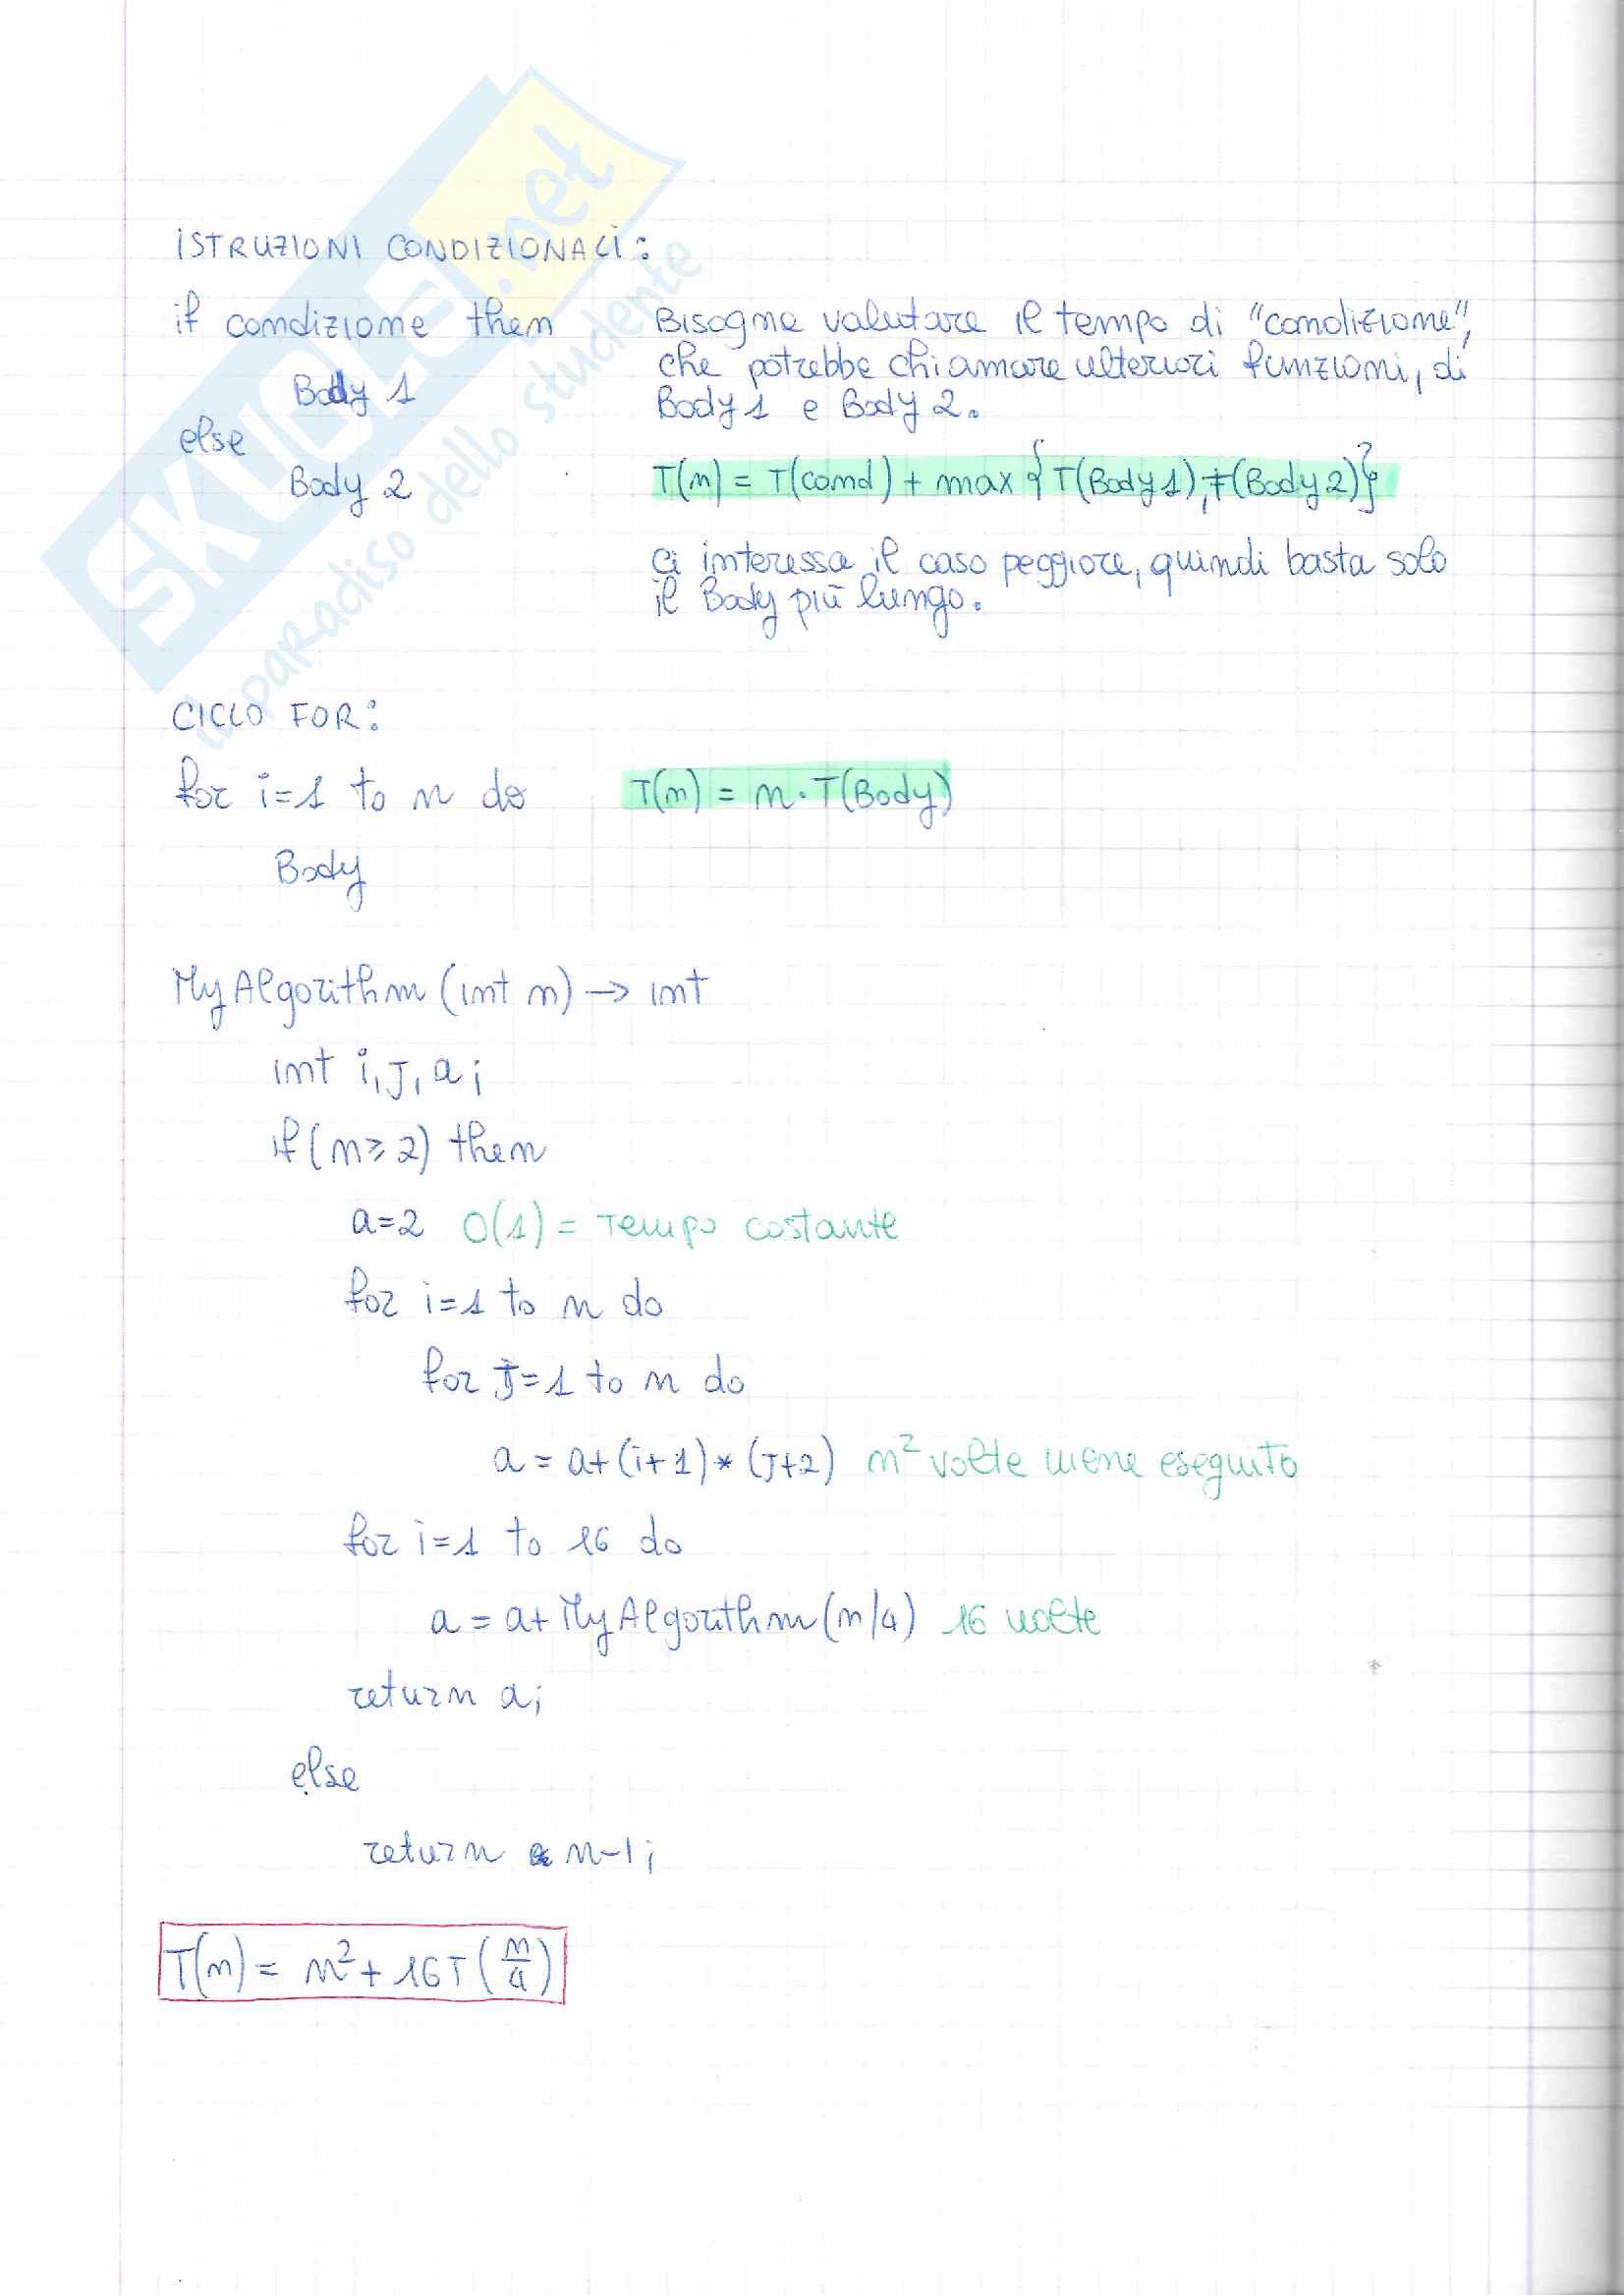 SKUOLA.net
il paradiso dello studente
ISTRUZIONI CONDIZIONALI:
if condizione then
Body 1
else
Body 2
Bisogna valutare il tempo di "condizione",
che potrebbe chiamare ulteriori funzioni, di
Body 1 e Body 2.
T(n) = T(cond) + max {T(Body 1), T(Body 2)}
Ci interessa il caso peggiore, quindi basta solo
il Body più lungo.
CICLO FOR:
for i=1 to n do T(n) = n · T(Body)
Body
MyAlgorithm (int n) → int
int i, J, a;
if (n ≥ 2) then
a=2 O(1) = Tempo costante
for i=1 to n do
for J=1 to n do
a = a+(i+1)*(J+2) n² volte viene eseguito
for i=1 to 16 do
a = a+ MyAlgorithm (n/4) 16 volte
return a;
else
return n-1;
T(n) = n² + 16T (n/4)